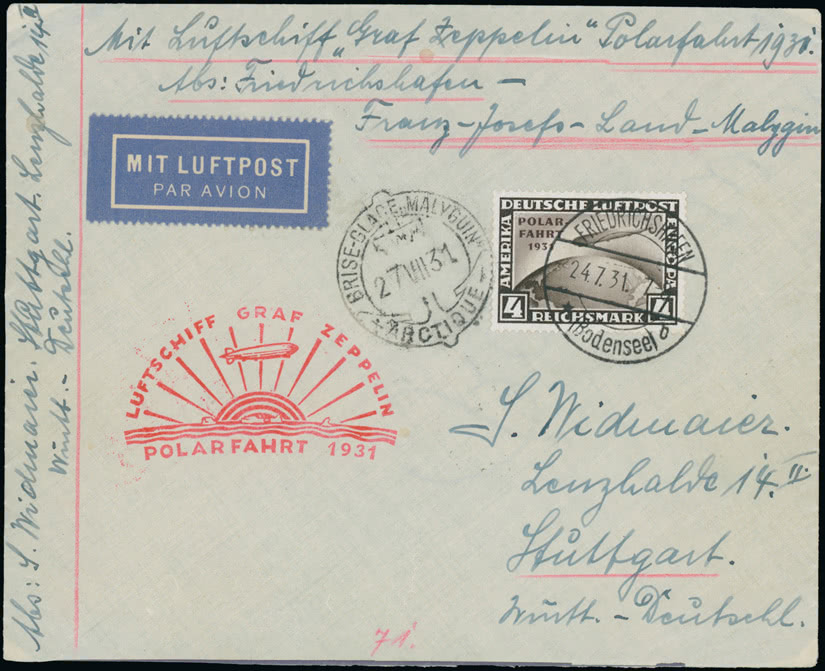 Mit Luftschiff „Graf Zeppelin“ Polarfahrt 1931.
Abs: Friedrichshafen –
Franz-Josefs-Land-Malygin
MIT LUFTPOST
PAR AVION
BRISE-GLACE „MALYGUIN“
27 VII 31
ARCTIQUE
DEUTSCHE LUFTPOST
AMERIKA
EUROPA
POLAR
FAHRT
1931
4
4
REICHSMARK
FRIEDRICHSHAFEN
24.7.31.
(Bodensee)
LUFTSCHIFF GRAF ZEPPELIN
POLARFAHRT 1931
S. Widmaier.
Lenzhalde 14.II.
Stuttgart.
Württ. - Deutschl.
71.
Abs: S. Widmaier. Stuttgart. Lenzhalde 14II
Württ. - Deutschl.